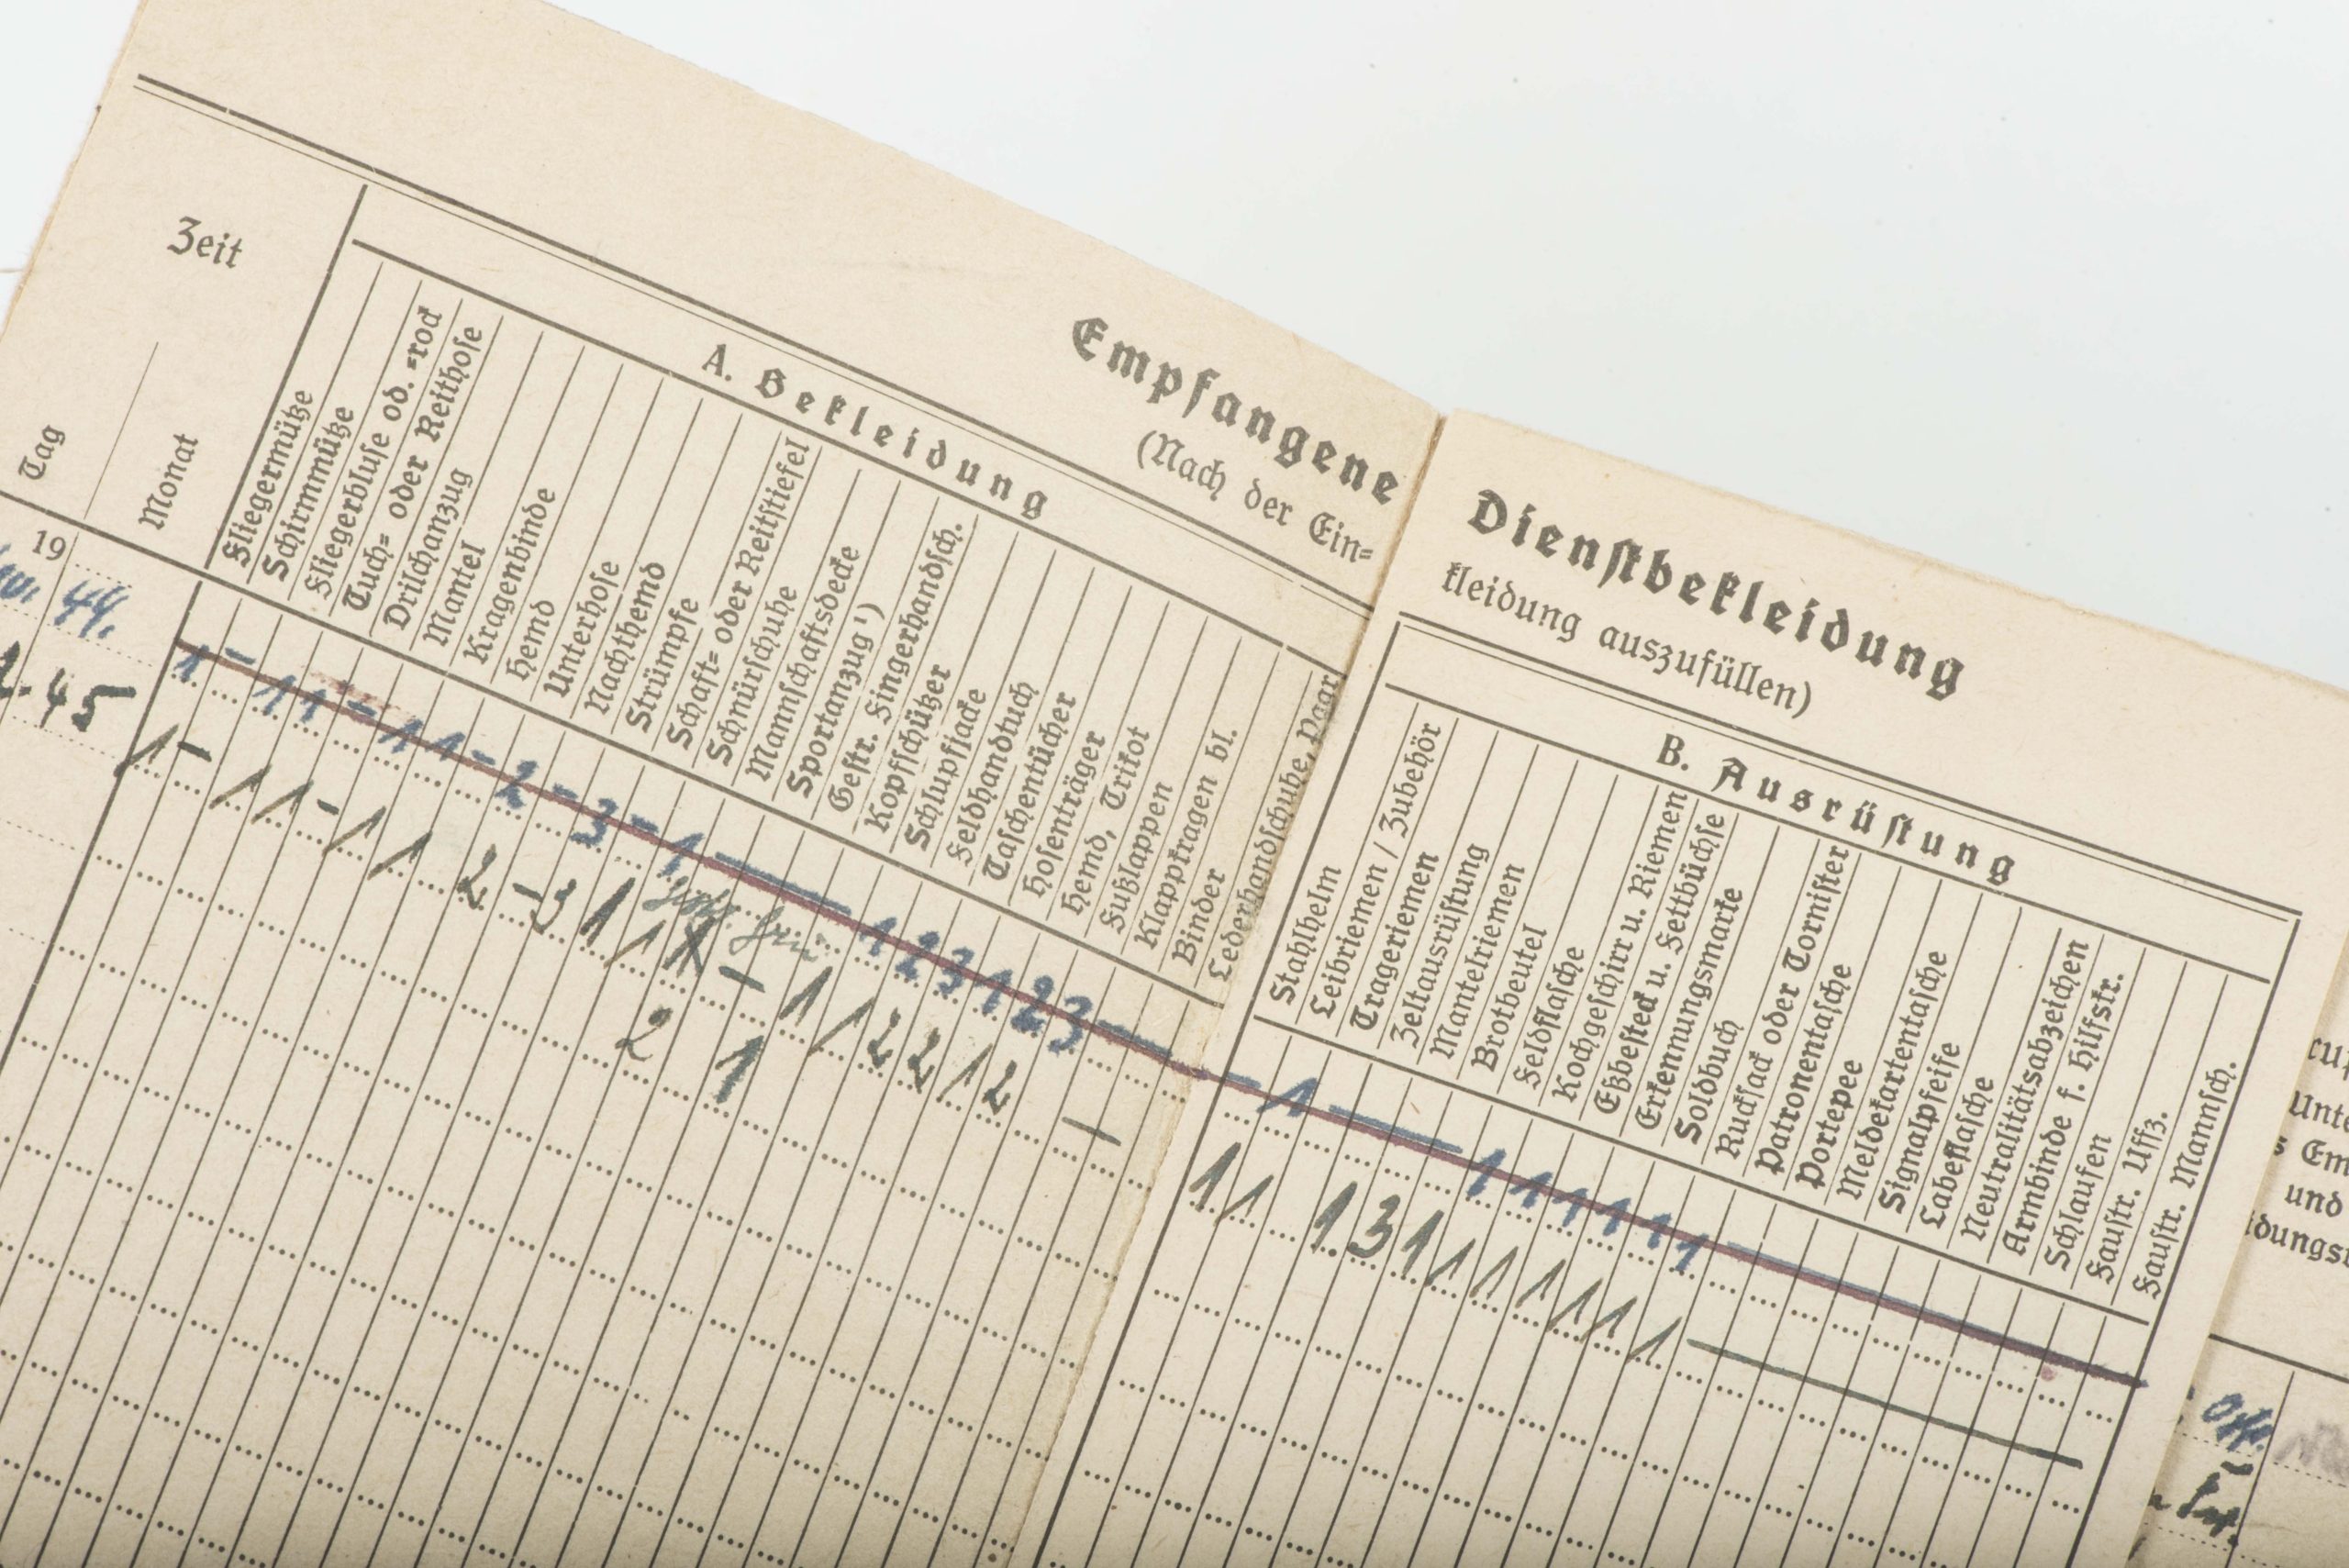 Empfangene Dienstbekleidung
(Nach der Ein= kleidung auszufüllen)
Zeit
Tag
Monat
19
A. Bekleidung
Fliegermütze
Schirmmütze
Fliegerbluse od. =rock
Tuch= oder Reithose
Drilchanzug
Mantel
Kragenbinde
Hemd
Unterhose
Nachthemd
Strümpfe
Schaft= oder Reitstiefel
Schnürschuhe
Mannschaftsdecke
Sportanzug ¹)
Gestr. Fingerhandsch.
Kopfschützer
Schlupfjacke
Feldhandtuch
Taschentücher
Hosenträger
Hemd, Trikot
Fußlappen
Klappkragen bl.
Binder
Lederhandschuhe, Paar
B. Ausrüstung
Stahlhelm
Leibriemen / Zubehör
Trageriemen
Zeltausrüstung
Mantelriemen
Brotbeutel
Feldflasche
Kochgeschirr u. Riemen
Eßbesteck u. Fettbüchse
Erkennungsmarke
Soldbuch
Rucksack oder Tornister
Patronentasche
Portepee
Meldekartentasche
Signalpfeife
Labeflasche
Neutralitätsabzeichen
Armbinde f. Hilfstr.
Schlaufen
Faustr. Uffz.
Faustr. Mannsch.
44.
1 - 1 1 - 1 1 - 2 - 3 - 1 — 1 2 3 1 2 3 — - 1 — 1 1 1 1 1 1 —
45
1 - 1 1 - 1 1 2 - 3 1 1 1 - 1 1 2 2 1 2 — 1 1 1 3 1 1 1 1 1 1 1 —
2 1
Unte
Em
und
dungs